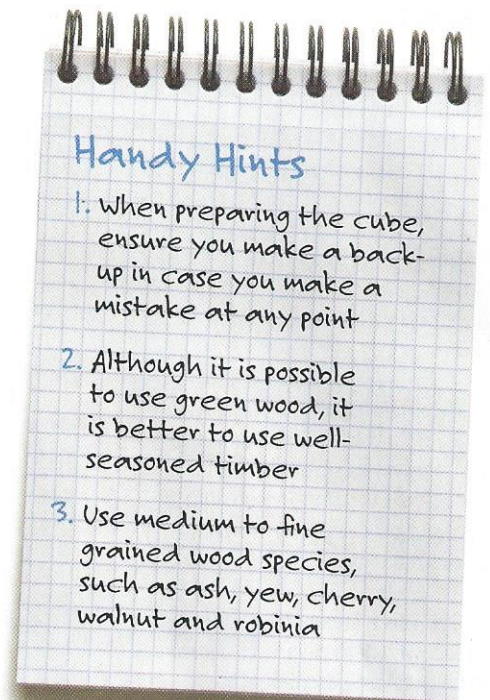 Handy Hints
1. When preparing the cube,
ensure you make a back-
up in case you make a
mistake at any point
2. Although it is possible
to use green wood, it
is better to use well-
seasoned timber
3. Use medium to fine
grained wood species,
such as ash, yew, cherry,
walnut and robinia